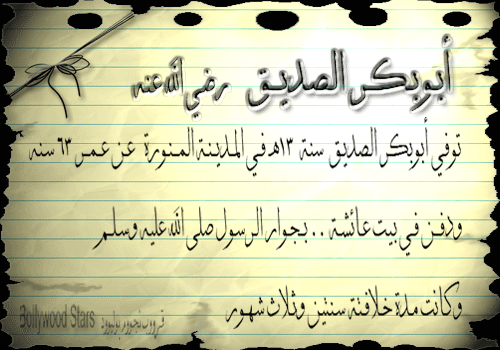 أبوبكر الصديق رضي الله عنه
توفي أبوبكر الصديق سنة ١٣هـ في المدينة المنورة عن عمر ٦٣ سنه
ودفن في بيت عائشة .. بجوار الرسول صلى الله عليه وسلم
وكانت مدة خلافته سنتين وثلاث شهور
Bollywood Stars